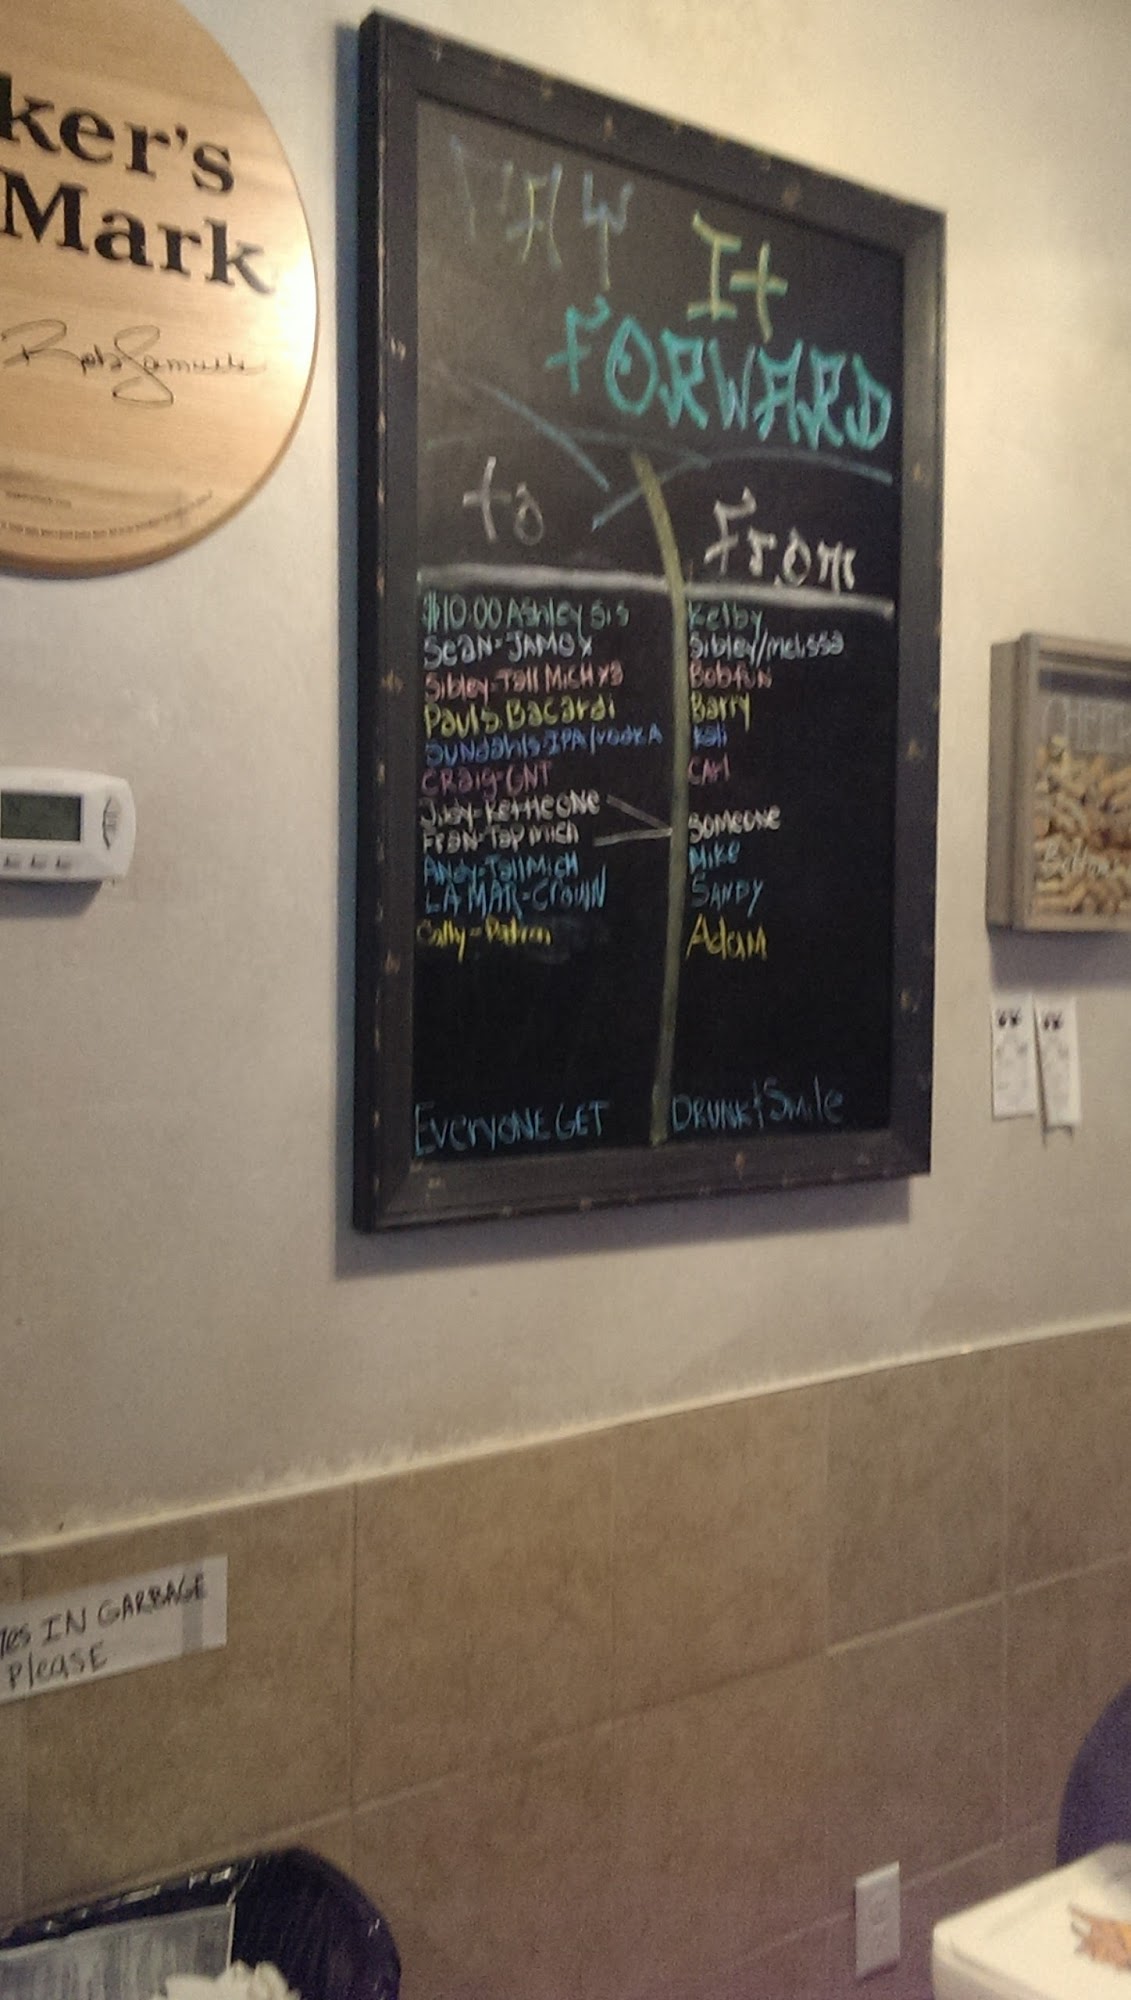 ker's
Mark
PAY It
FORWARD
to From
$10.00 Ashley Sis Kelby
Sean-JAMO X Sibley/melissa
Sibley-Tall Mich x2 Bobfun
Pauls Bacardi Barry
Sundahls-IPA/vodka Kali
Craig-GNT Carl
Judy-Kettle ONE
Fran-Tap mich Someone
Andy-Tall Mich Mike
LAMAR-CROWN SANDY
Cally-Patron Adam
EveryONE GET DRUNK & Smile
IN GARBAGE
Please